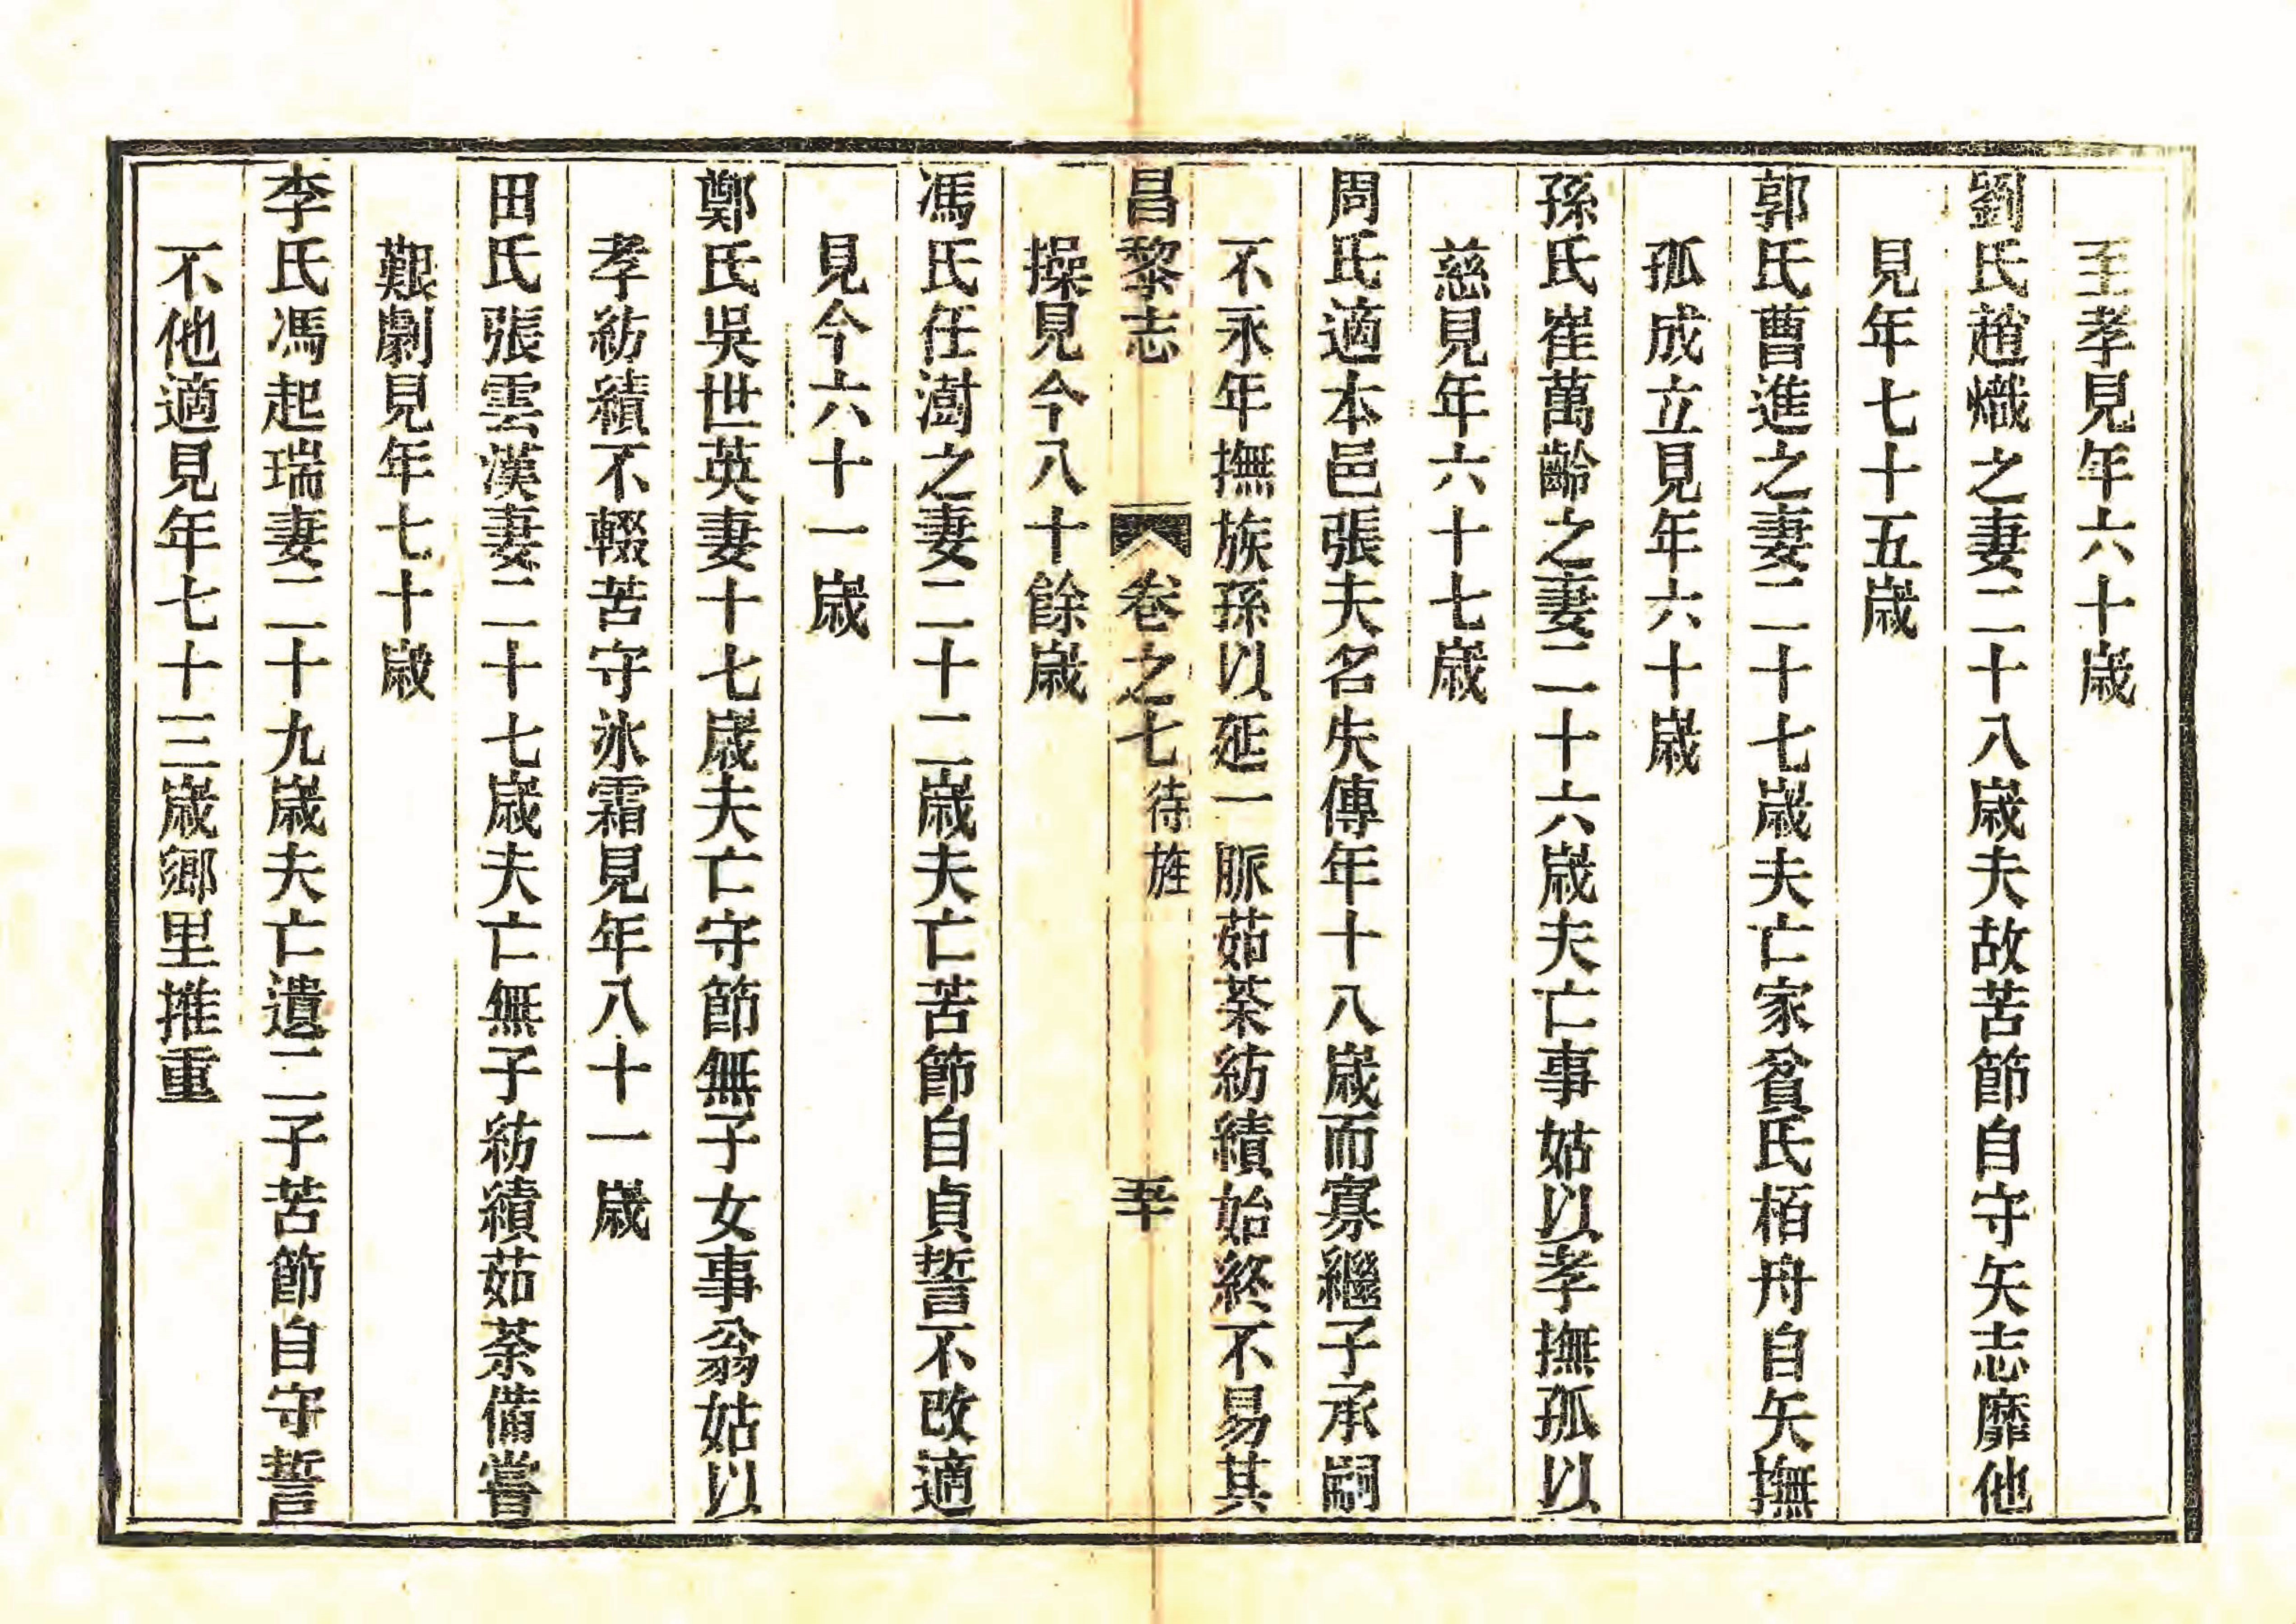 至孝見年六十歲
劉氏趙熾之妻二十八歲夫故苦節自守矢志靡他
見年七十五歲
郭氏曹進之妻二十七歲夫亡家貧氏栢舟自矢撫
孤成立見年六十歲
孫氏崔萬齡之妻二十六歲夫亡事姑以孝撫孤以
慈見年六十七歲
周氏適本邑張夫名失傳年十八歲而寡繼子承嗣
不永年撫族孫以延一脈茹荼紡績始終不易其
昌黎志 卷之七 待旌 五十
操見今八十餘歲
馮氏任澍之妻二十二歲夫亡苦節自貞誓不改適
見今六十一歲
鄭氏吳世英妻十七歲夫亡守節無子女事翁姑以
孝紡績不輟苦守氷霜見年八十一歲
田氏張雲漢妻二十七歲夫亡無子紡績茹荼備嘗
艱劇見年七十歲
李氏馮起瑞妻二十九歲夫亡遺二子苦節自守誓
不他適見年七十三歲鄉里推重